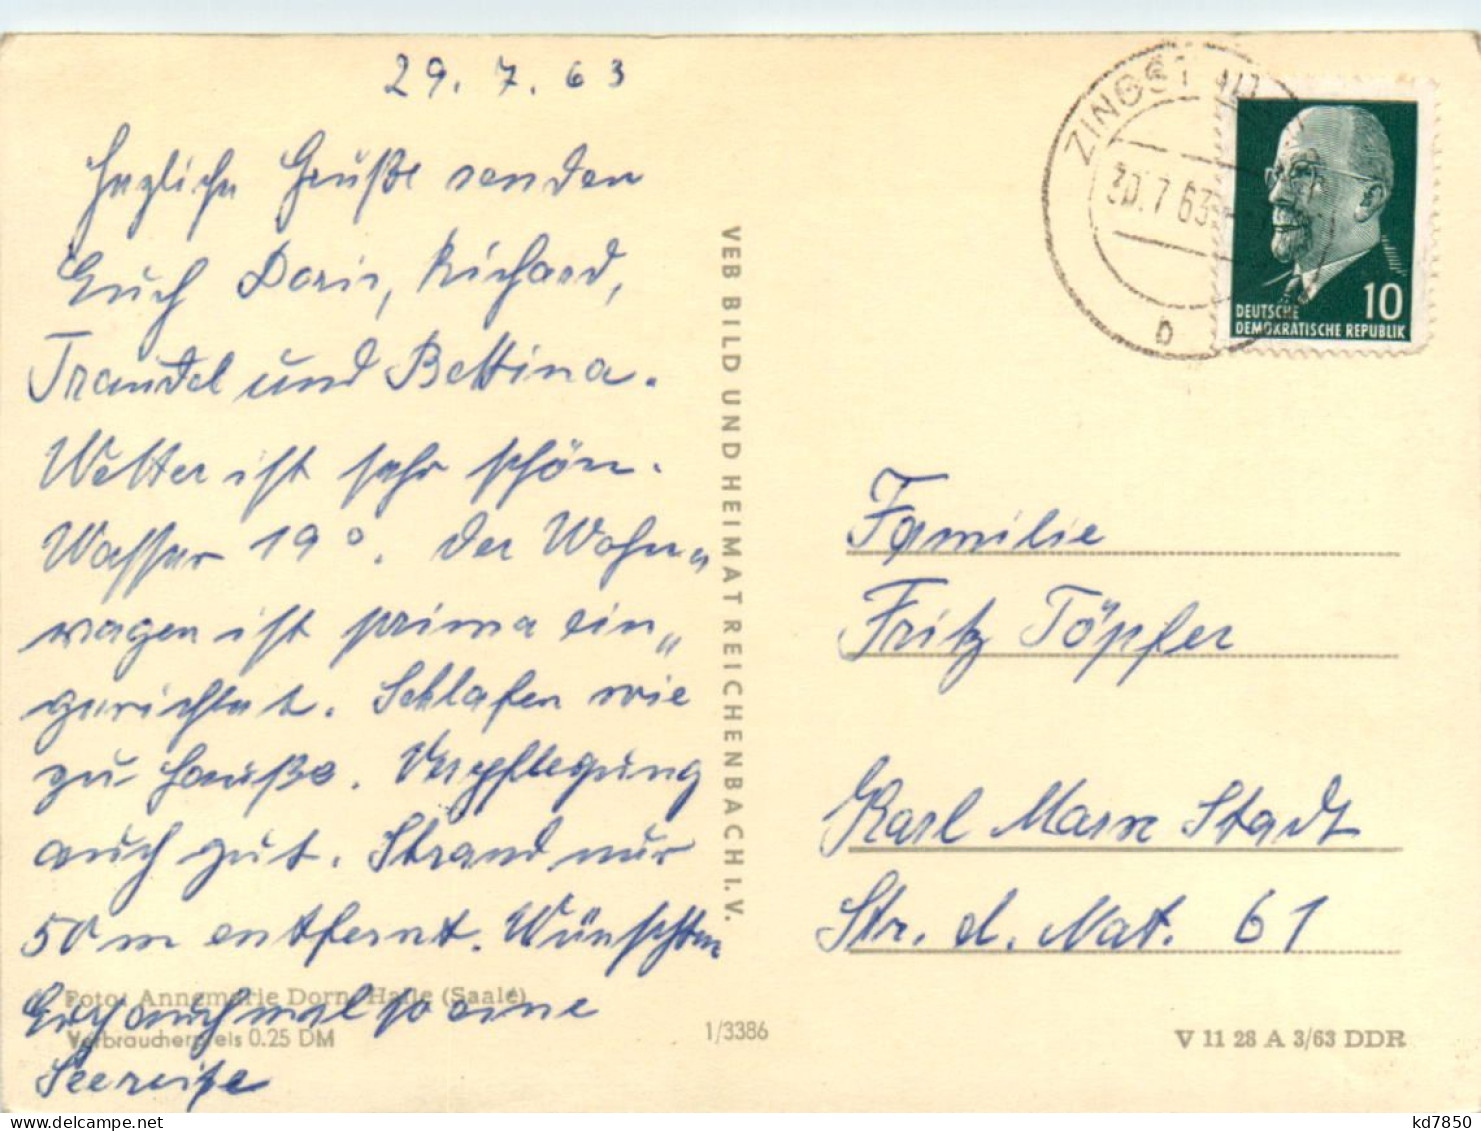 29. 7. 63
Herzliche Grüße senden
Euch Doris, Richard,
Traudel und Bettina.
Wetter ist sehr schön.
Wasser 19°. Der Wohn„
wagen ist prima ein„
gerichtet. Schlafen wie
zu Hauße. Verpflegung
auch gut. Strand nur
50 m entfernt. Wünschten
Euch auch mal so eine
Seereise
Foto: Annemarie Dorn, Halle (Saale)
Verbraucherpreis 0.25 DM
VEB BILD UND HEIMAT REICHENBACH I. V.
1/3386
ZINGST
30.7.63
b
10
DEUTSCHE
DEMOKRATISCHE REPUBLIK
Familie
Fritz Töpfer
Karl Marx Stadt
Str. d. Nat. 61
V 11 28 A 3/63 DDR
kd7850